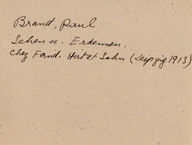 Brand, Paul
Sehen u. Erkennen.
Chez Ferd. Hirt & Sohn (Leipzig 1913)